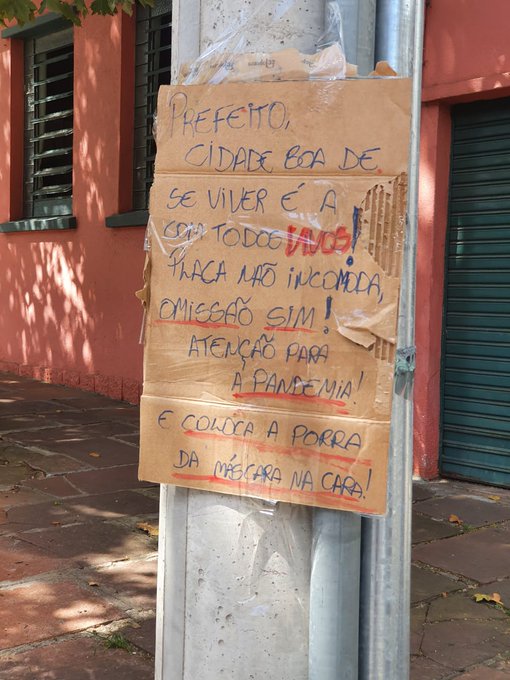 PREFEITO,
CIDADE BOA DE
SE VIVER É A
COM TODOS VIVOS!
PLACA NÃO INCOMODA,
OMISSÃO SIM!
ATENÇÃO PARA
A PANDEMIA!
E COLOCA A PORRA
DA MÁSCARA NA CARA!